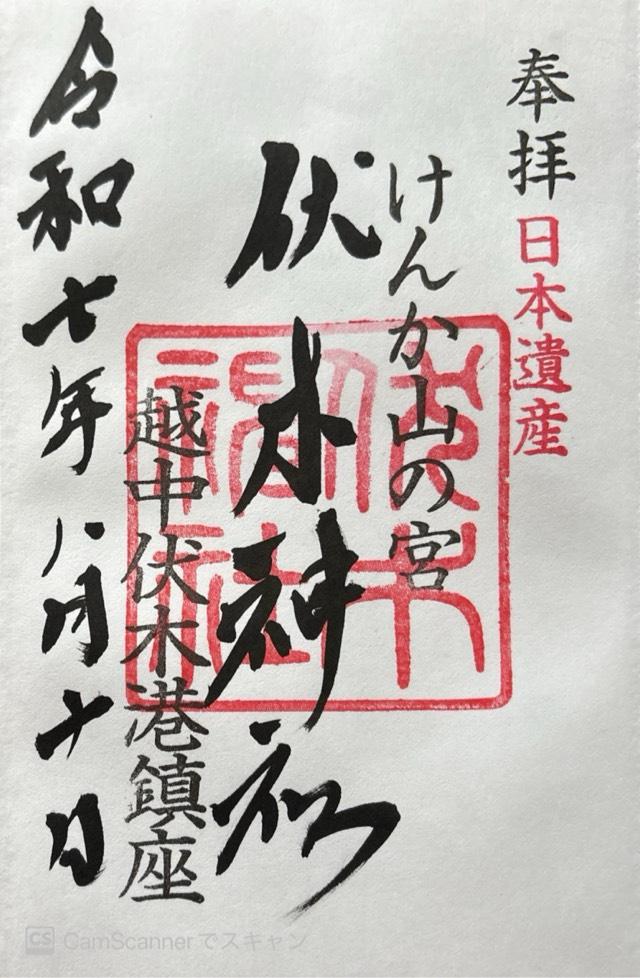 奉拝
日本遺産
けんか山の宮
伏木神社
伏木神社
越中伏木港鎮座
令和七年八月十日
CS CamScannerでスキャン